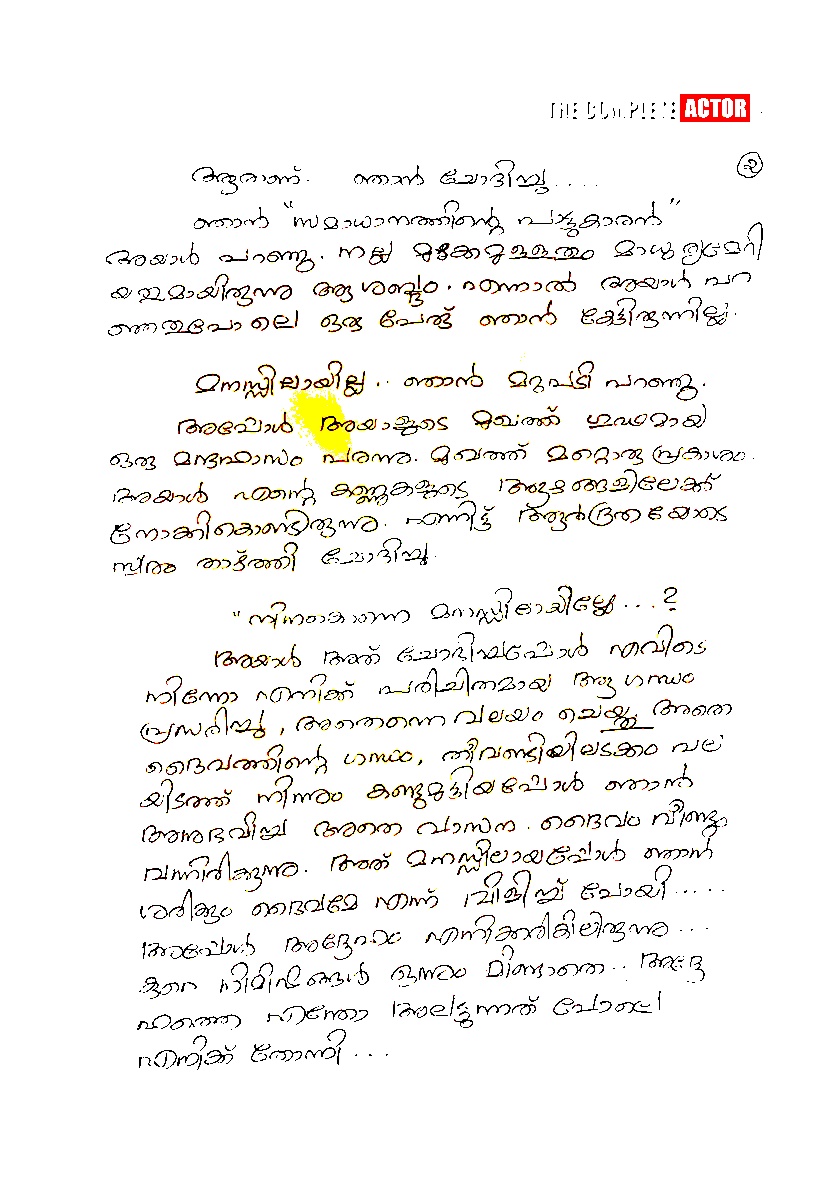 THE COMPLETE ACTOR
൨
ആരാണ്. ഞാൻ ചോദിച്ചു....
ഞാൻ "സമാധാനത്തിന്റെ പാട്ടുകാരൻ"
അയാൾ പറഞ്ഞു. നല്ല മുഴക്കമുള്ളതും മാധുര്യമേറി
യതുമായിരുന്നു ആ ശബ്ദം. എന്നാൽ അയാൾ പറ
ഞ്ഞതുപോലെ ഒരു പേര് ഞാൻ കേട്ടിരുന്നില്ല.
മനസ്സിലായില്ല.. ഞാൻ മറുപടി പറഞ്ഞു.
അപ്പോൾ അയാളുടെ മുഖത്ത് ഗാഢമായ
ഒരു മന്ദഹാസം പരന്നു. മുഖത്ത് മറ്റൊരു പ്രകാശം.
അയാൾ എന്റെ കണ്ണുകളുടെ ആഴങ്ങളിലേക്ക്
നോക്കികൊണ്ടിരുന്നു. എന്നിട്ട് ആർദ്രതയോടെ
സ്വരം താഴ്ത്തി ചോദിച്ചു.
"നിനക്കെന്നെ മനസ്സിലായില്ലേ...?
അയാൾ അത് ചോദിച്ചപ്പോൾ എവിടെ
നിന്നോ എനിക്ക് പരിചിതമായ ആ ഗന്ധം
പ്രസരിച്ചു, അതെന്നെ വലയം ചെയ്തു അതെ
ദൈവത്തിന്റെ ഗന്ധം, തീവണ്ടിയിലടക്കം പല
യിടത്ത് നിന്നും കണ്ടുമുട്ടിയപ്പോൾ ഞാൻ
അനുഭവിച്ച അതെ വാസന. ദൈവം വീണ്ടും
വന്നിരിക്കുന്നു. അത് മനസ്സിലായപ്പോൾ ഞാൻ
ശരിക്കും ദൈവമേ എന്ന് വിളിച്ച് പോയി.....
അപ്പോൾ അദ്ദേഹം എനിക്കരികിലിരുന്നു...
കുറെ നിമിഷങ്ങൾ ഒന്നും മിണ്ടാതെ.. അദ്ദേ
ഹത്തെ എന്തോ അലട്ടുന്നത് പോലെ
എനിക്ക് തോന്നി...